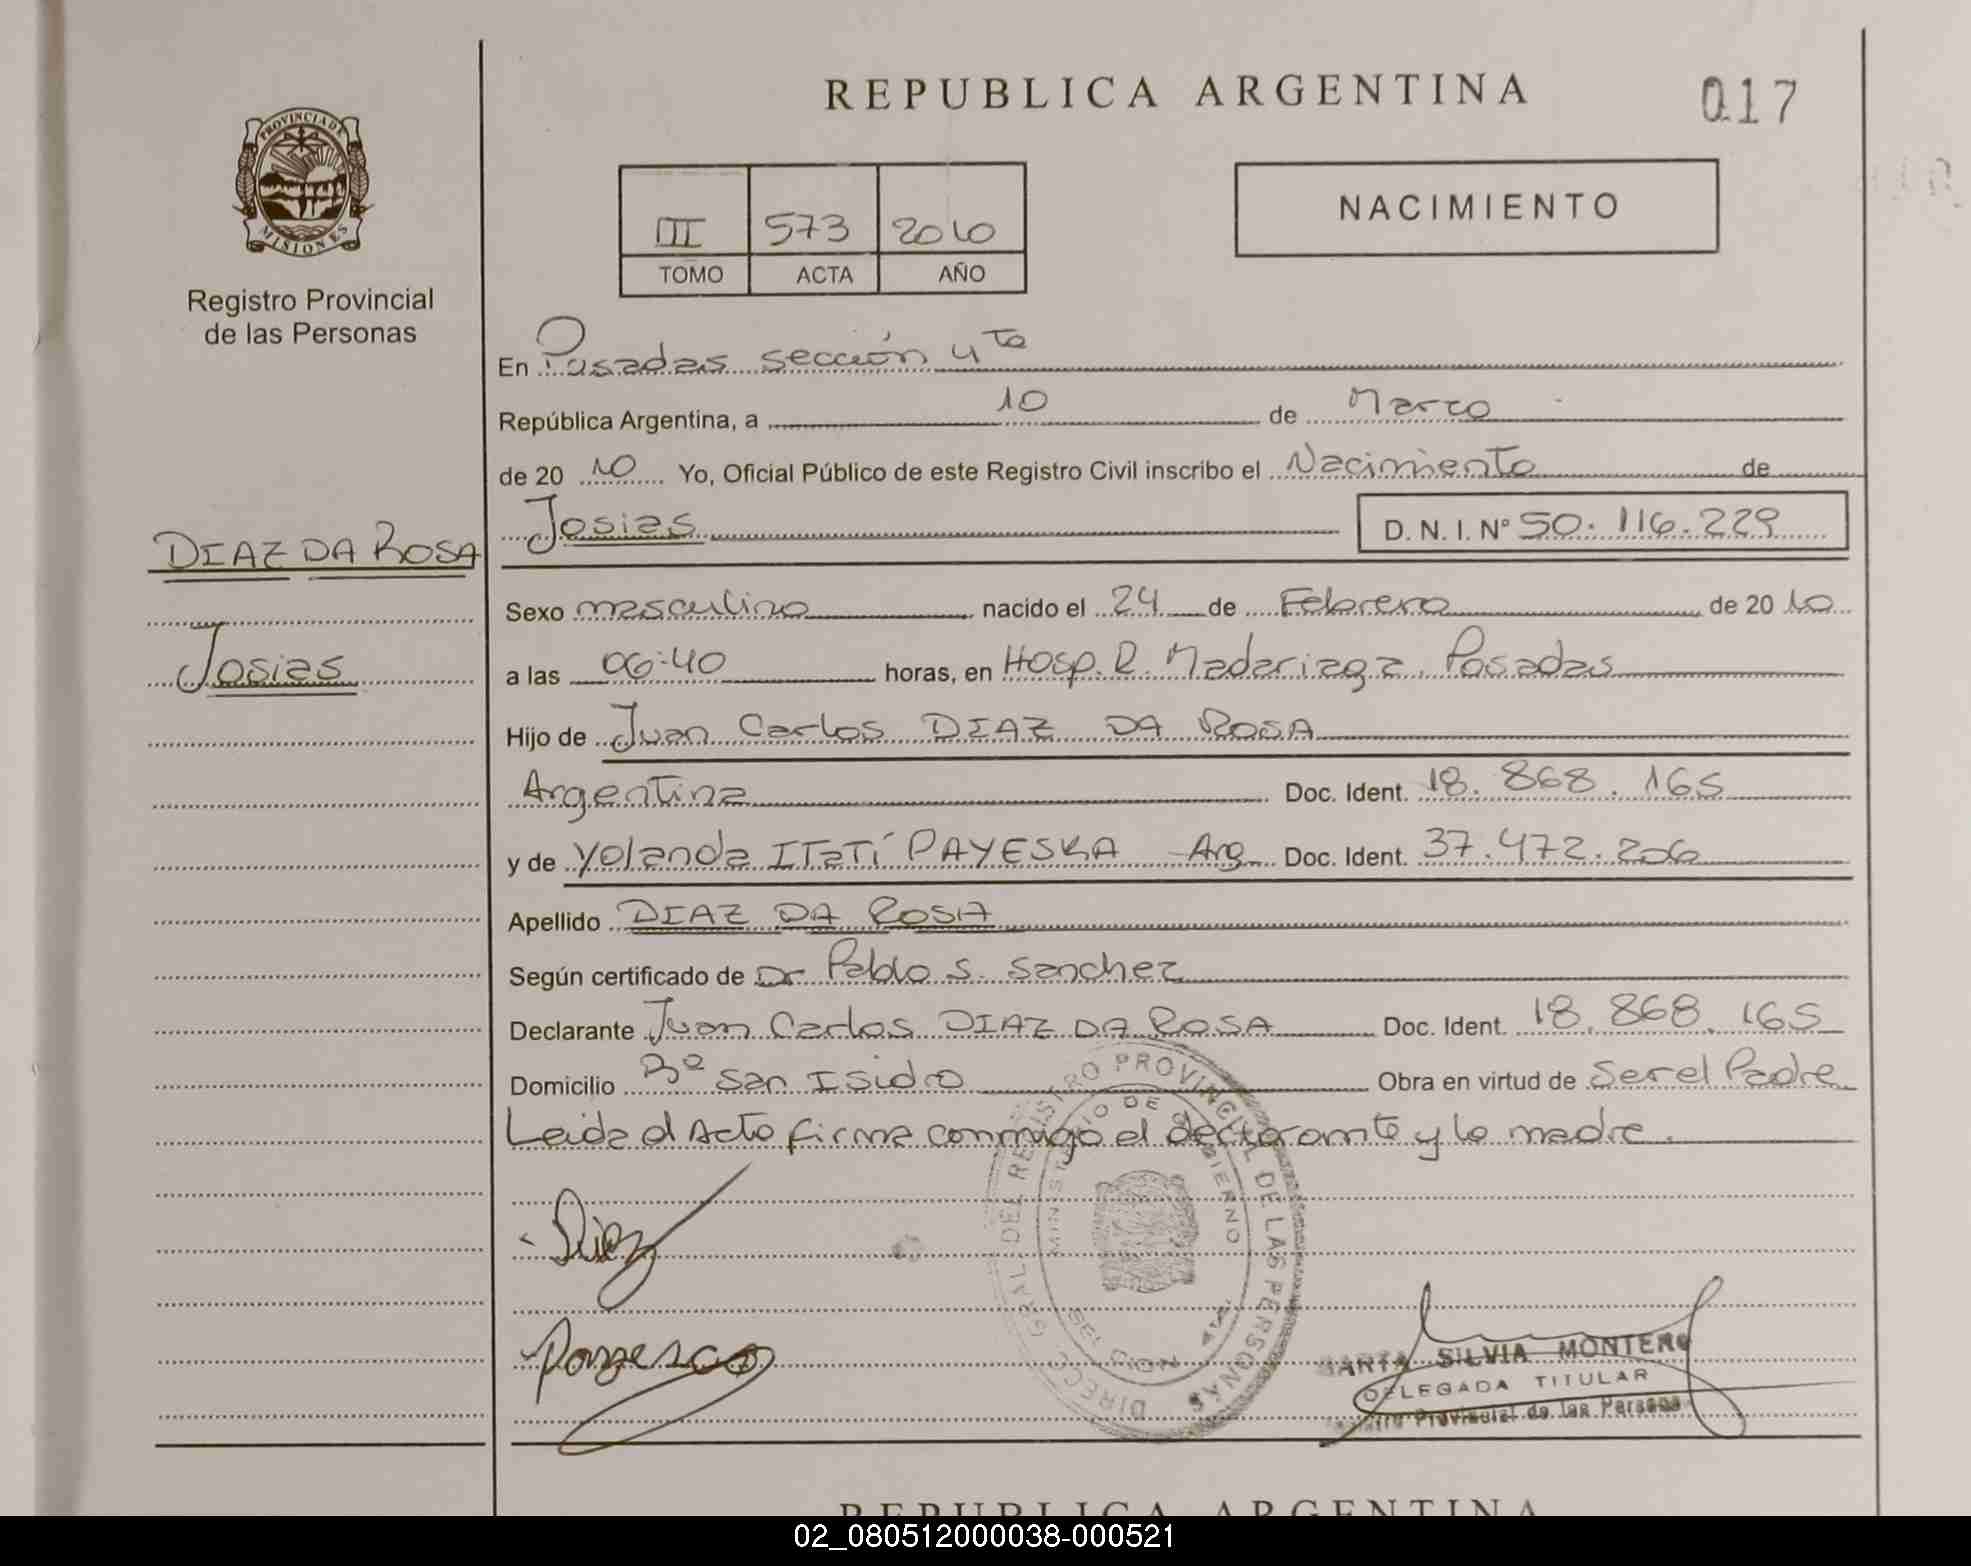 REPUBLICA ARGENTINA
017
PROVINCIA DE
MISIONES
Registro Provincial
de las Personas
III 573 2010
TOMO ACTA AÑO
NACIMIENTO
En Posadas sección 4ta
República Argentina, a 10 de Marzo
de 20 10 Yo, Oficial Público de este Registro Civil inscribo el Nacimiento de
Josias D. N. I. Nº 50.116.229
DIAZ DA ROSA
Josias
Sexo masculino nacido el 24 de Febrero de 20 10
a las 06:40 horas, en Hosp. R. Madariaga. Posadas
Hijo de Juan Carlos DIAZ DA ROSA
Argentina Doc. Ident. 18.868.165
y de Yolanda ITaTí PAYESKA Arg Doc. Ident. 37.472.206
Apellido DIAZ DA ROSA
Según certificado de Dr Pablo S. Sanchez
Declarante Juan Carlos DIAZ DA ROSA Doc. Ident. 18.868.165
Domicilio Bº San Isidro Obra en virtud de Ser el Padre
Leida el Acto firma conmigo el declarante y la madre.
DIRECC. GRAL. DEL REGISTRO PROVINCIAL DE LAS PERSONAS
MINISTERIO DE GOBIERNO
MARTA SILVIA MONTERO
DELEGADA TITULAR
Registro Provincial de las Personas
REPUBLICA ARGENTINA
02_080512000038-000521